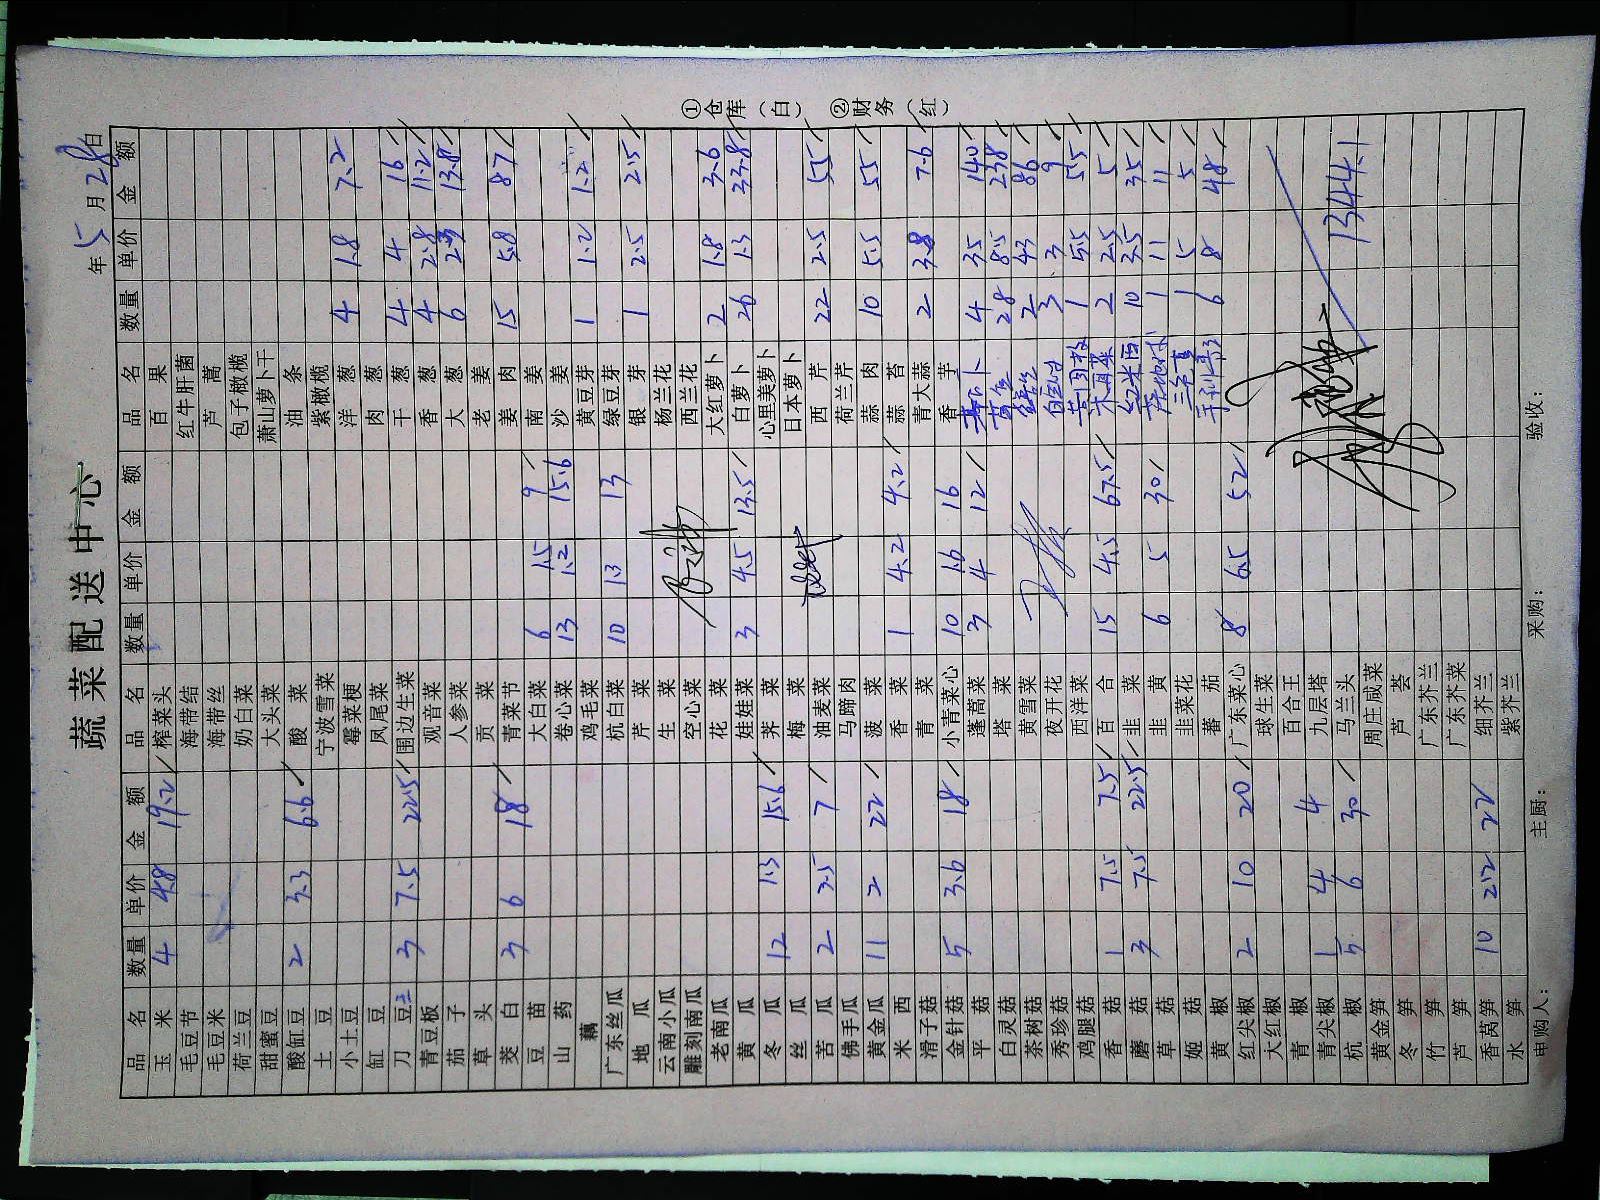 蔬菜配送中心
年 5 月 28 日
品名 数量 单价 金额 品名 数量 单价 金额 品名 数量 单价 金额
玉米 4 4.8 19.2 榨菜头 百果
毛豆节 海带结 红牛肝菌
毛豆米 海带丝 芦蒿
荷兰豆 奶白菜 包子橄榄
甜蜜豆 大头菜 萧山萝卜干
酸缸豆 2 3.3 6.6 酸菜 油条
土豆 宁波雪菜 紫橄榄
小土豆 霉菜梗 洋葱 4 1.8 7.2
缸豆 凤尾菜 肉葱
刀豆 3 7.5 22.5 围边生菜 干葱 4 4 16
青豆板 观音菜 香葱 4 2.8 11.2
茄子 人参菜 大葱 6 2.3 13.8
草头 贡菜 老姜
茭白 3 6 18 青菜节 姜肉 15 5.8 87
豆苗 大白菜 6 1.5 9 南姜
山药 卷心菜 13 1.2 15.6 沙姜
藕 鸡毛菜 黄豆芽 1 1.2 1.2
广东丝瓜 杭白菜 10 1.3 13 绿豆芽
地瓜 芹菜 银芽 1 2.5 2.5
云南小瓜 生菜 杨兰花
雕刻南瓜 空心菜 西兰花
老南瓜 花菜 大红萝卜 2 1.8 3.6
黄瓜 娃娃菜 3 4.5 13.5 白萝卜 26 1.3 33.8
冬瓜 12 1.3 15.6 荠菜 心里美萝卜
丝瓜 梅菜 日本萝卜
苦瓜 2 3.5 7 油麦菜 西芹 22 2.5 55
佛手瓜 马蹄肉 荷兰芹
黄金瓜 11 2 22 菠菜 蒜肉 10 5.5 55
米西 香菜 1 4.2 4.2 蒜苔
滑子菇 青菜 青大蒜 2 3.8 7.6
金针菇 5 3.6 18 小青菜心 10 1.6 16 香芋
平菇 蓬蒿菜 3 4 12 4 35 140
白灵菇 塔菜 28 8.5 238
茶树菇 黄雪菜 2 43 86
秀珍菇 夜开花 3 3 9
鸡腿菇 西洋菜 1 55 55
香菇 1 7.5 7.5 百合 15 4.5 67.5 木耳菜 2 2.5 5
蘑菇 3 7.5 22.5 韭菜 10 3.5 35
草菇 韭黄 6 5 30 1 11 11
姬菇 韭菜花 1 5 5
黄椒 蕃茄 6 8 48
红尖椒 2 10 20 广东菜心 8 6.5 52
大红椒 球生菜
青椒 百合王
青尖椒 1 4 4 九层塔
杭椒 5 6 30 马兰头 1344.1
黄金笋 周庄咸菜
冬笋 芦荟
竹笋 广东芥兰
芦笋 广东芥菜
香莴笋 10 2.2 22 细芥兰
水笋 紫芥兰
申购人： 主厨： 采购： 验收：
①仓库（白） ②财务（红）